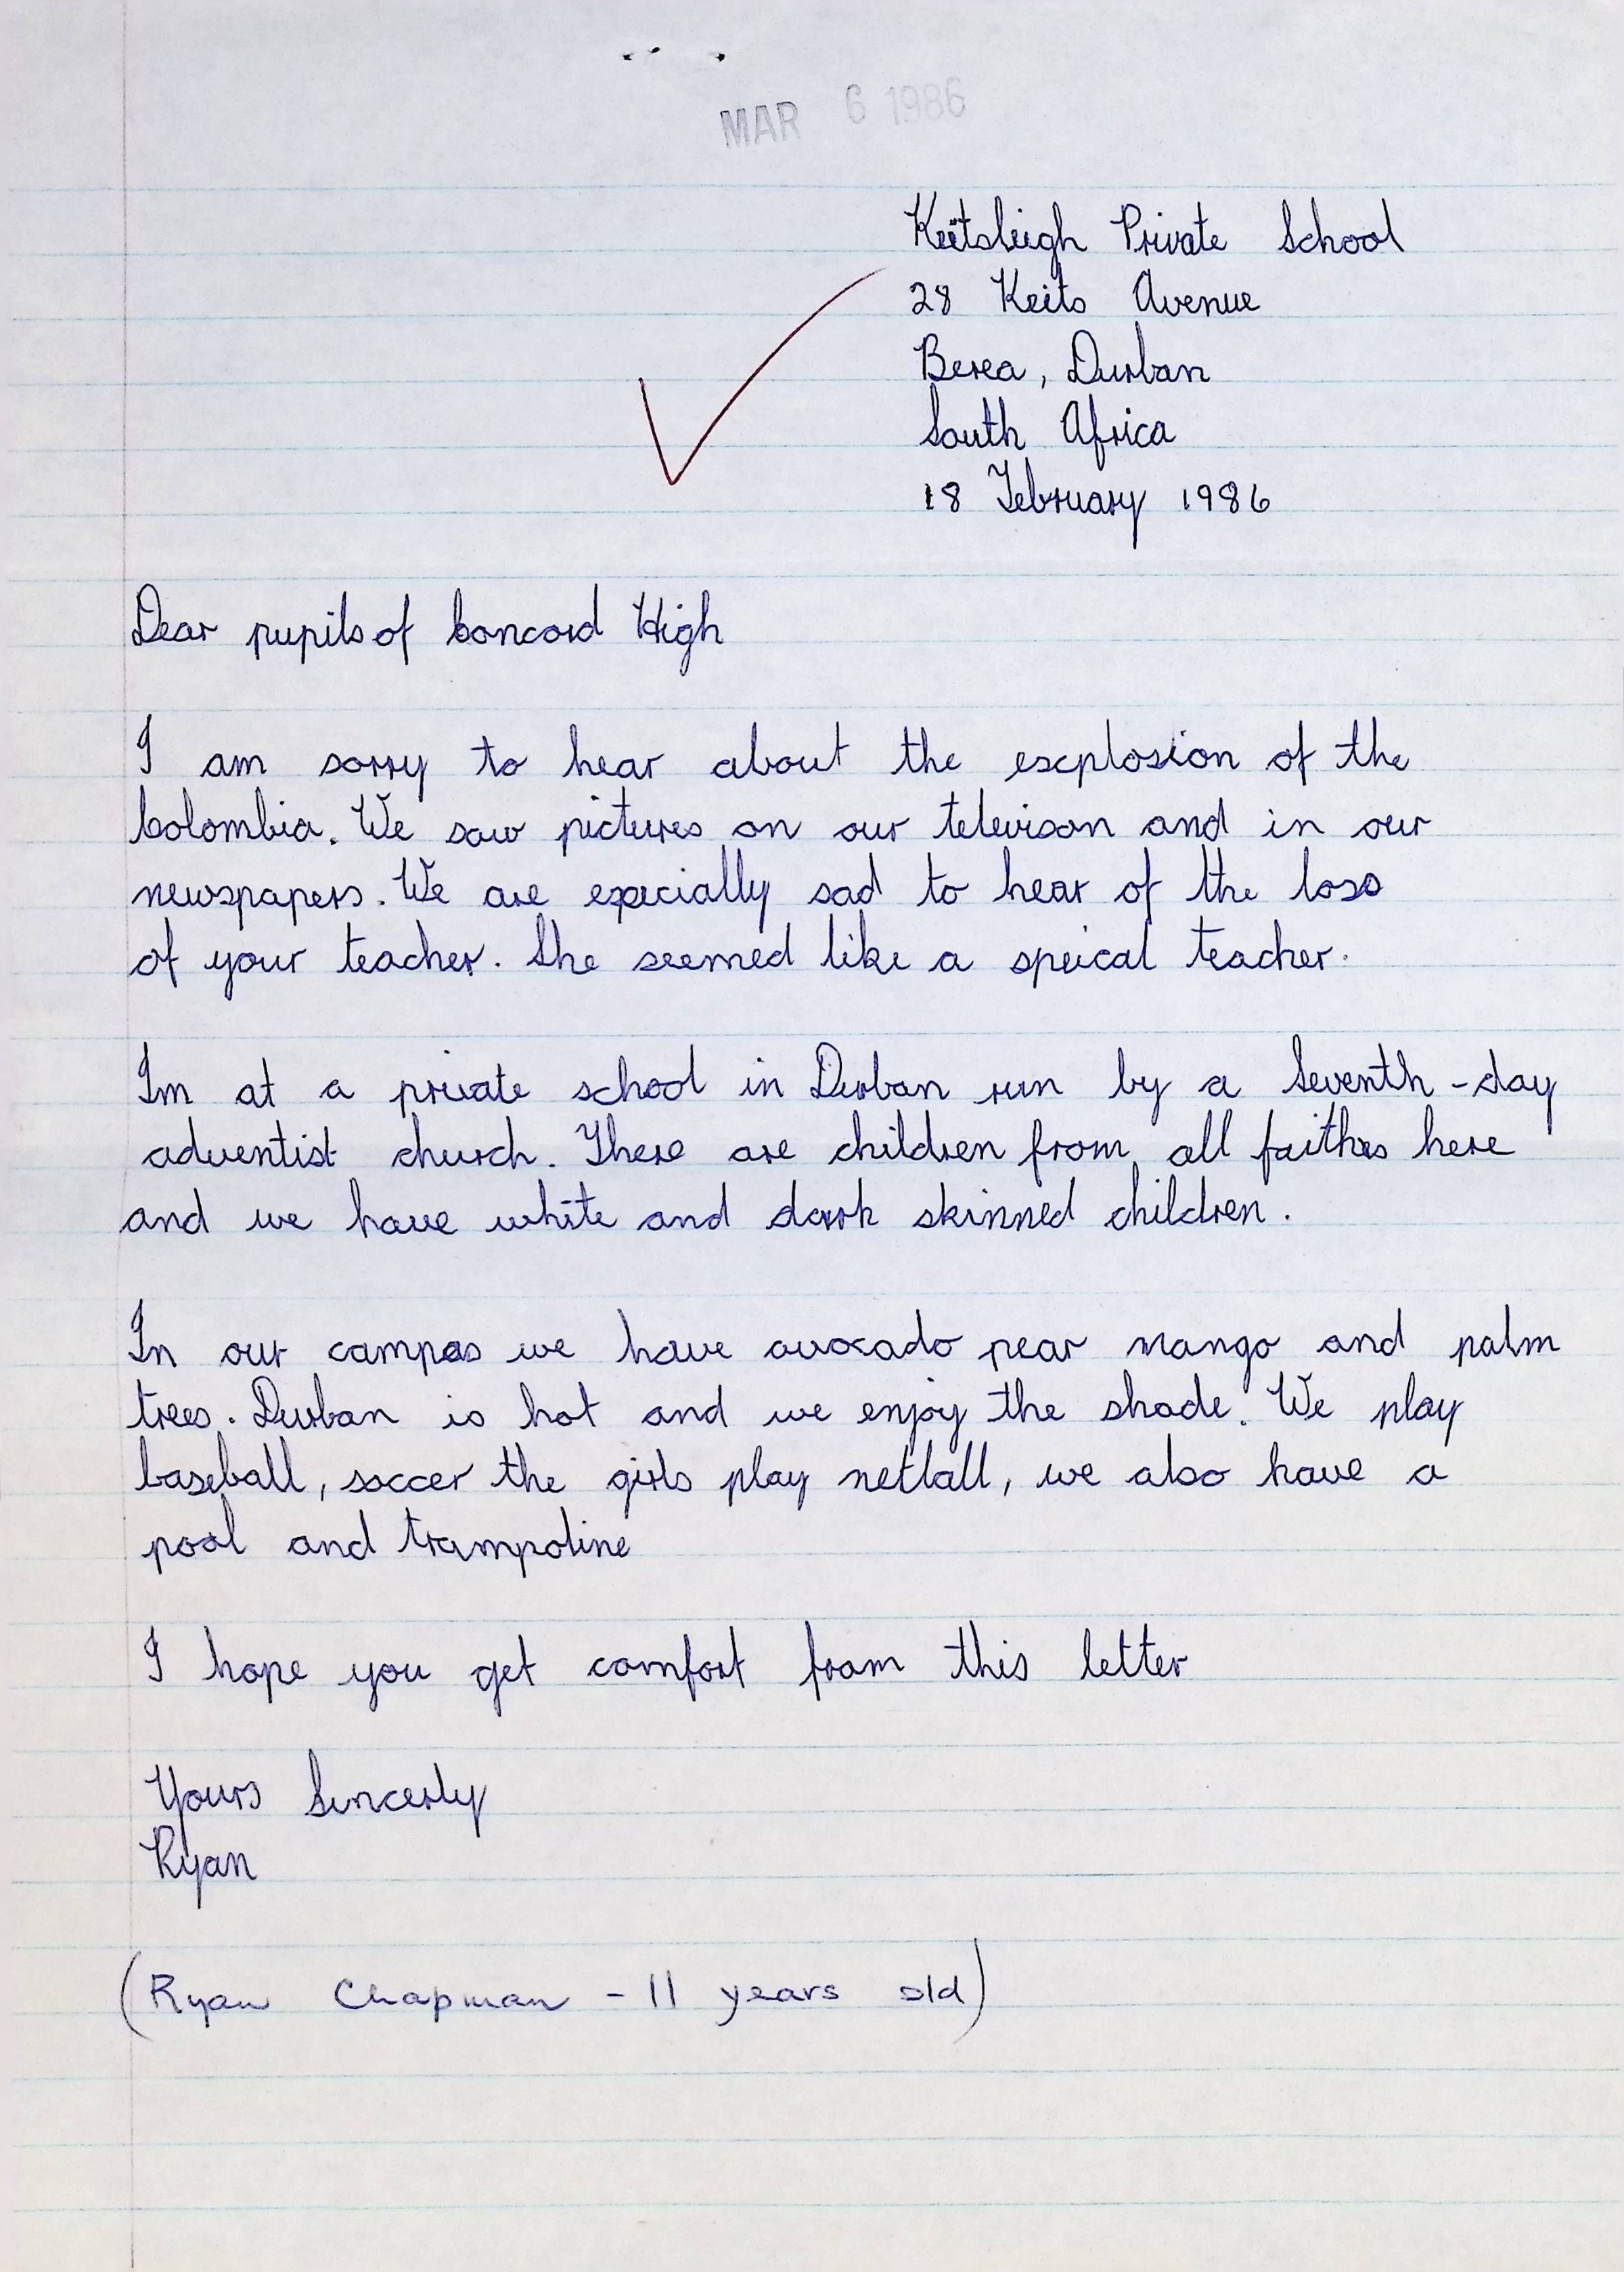 MAR 6 1986
Keitsleigh Private School
28 Keits Avenue
Berea, Durban
South Africa
18 February 1986
Dear pupils of Concord High
I am sorry to hear about the explosion of the
Colombia. We saw pictures on our televison and in our
newspapers. We are especially sad to hear of the loss
of your teacher. She seemed like a speical teacher.
Im at a private school in Durban run by a Seventh-day
adventist church. There are children from all faiths here
and we have white and dark skinned children.
In our campas we have avocado pear mango and palm
trees. Durban is hot and we enjoy the shade. We play
baseball, soccer the girls play netball, we also have a
pool and trampoline
I hope you get comfort from this letter
Yours Sincerly
Ryan
(Ryan Chapman - 11 years old)